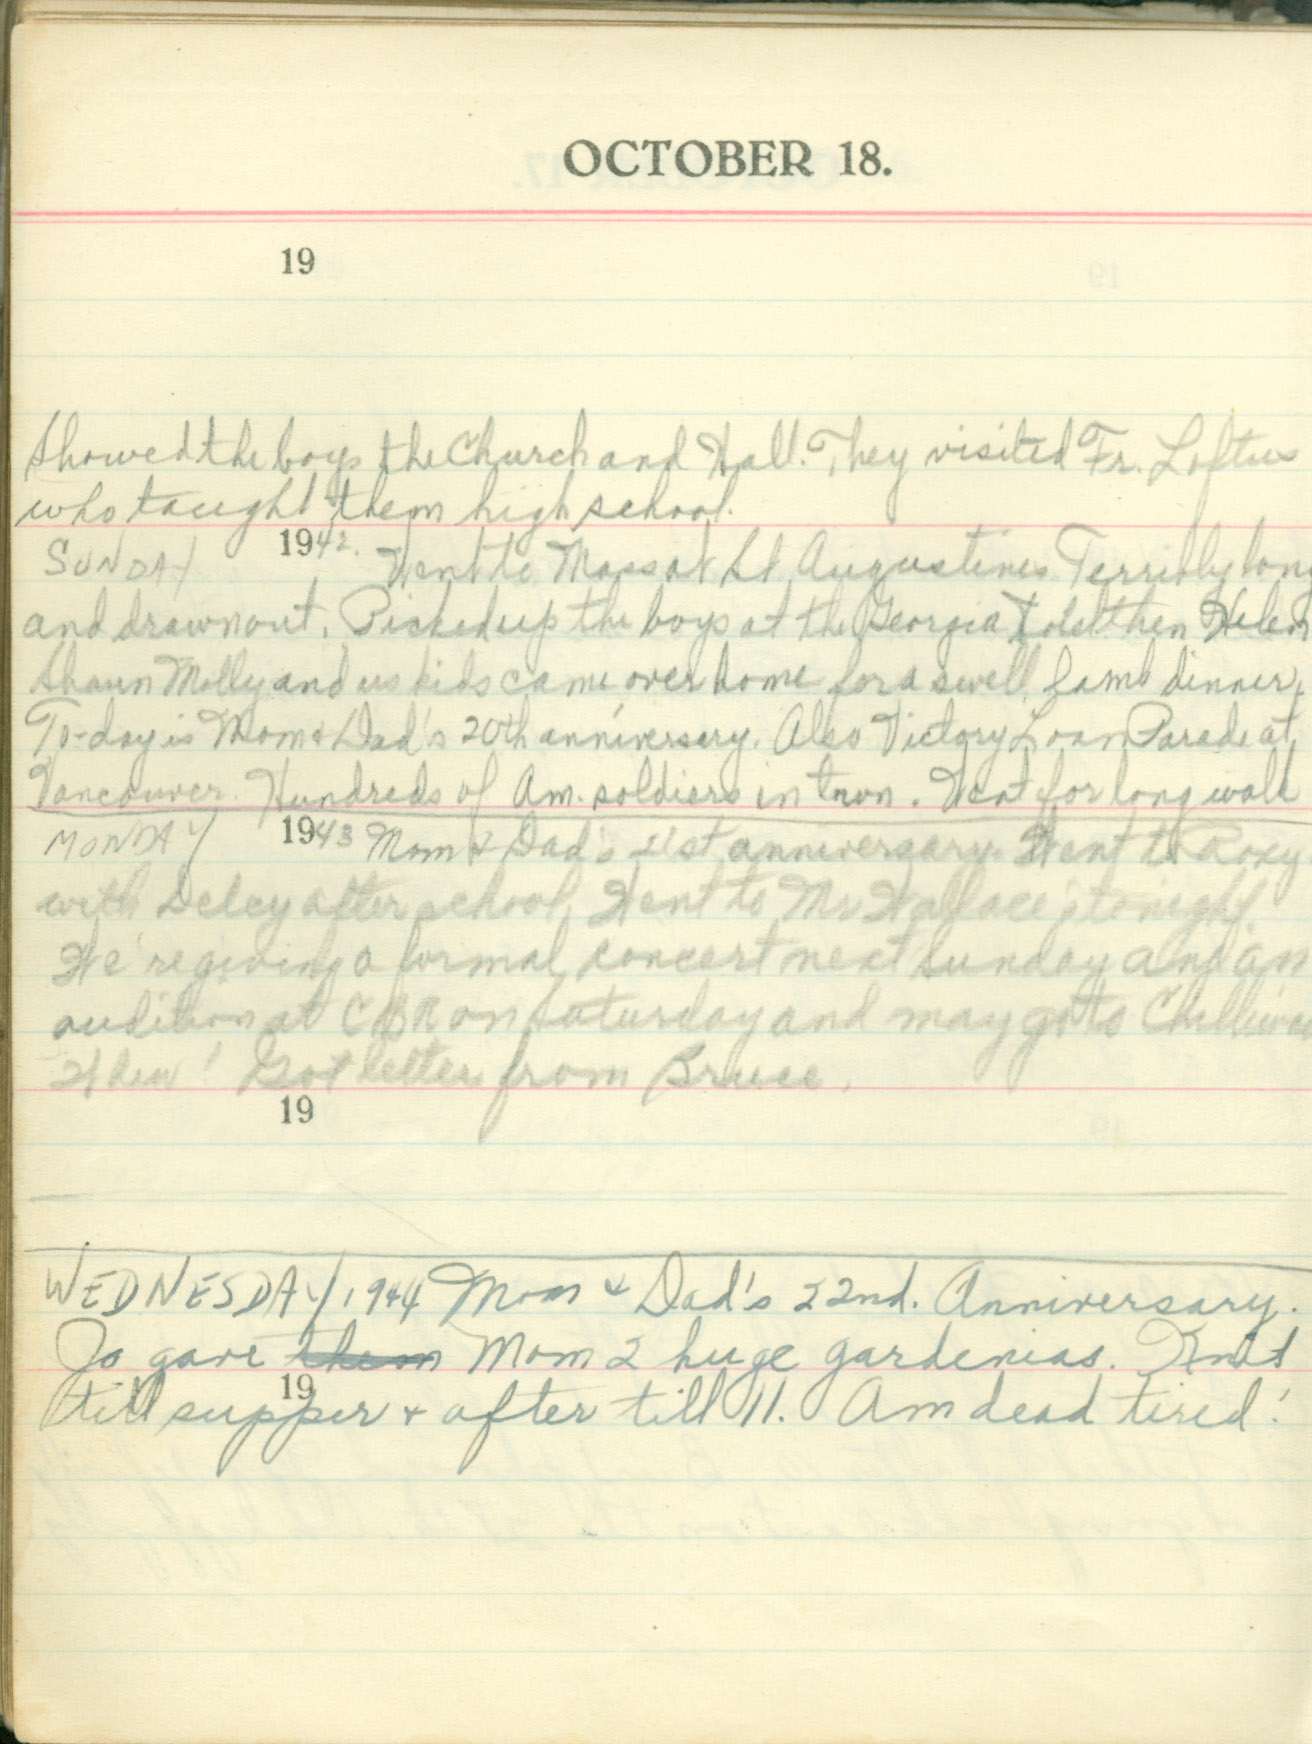 OCTOBER 18.
19
Showed the boys the Church and Hall. They visited Fr. Loftus
who taught them high school.
SUNDAY 1942. Went to Mass at St Augustines. Terribly long
and drawn out. Picked up the boys at the Georgia then Helen
Shaun Molly and us kids came over home for a swell lamb dinner.
To-day is Mom & Dad's 20th anniversary. Also Victory Loan Parade at
Vancouver. Hundreds of Am. soldiers in town. Went for long walk
MONDAY 1943 Mom & Dad's 21st anniversary. Went to Roxy
with Delcy after school. Went to Mr Wallace tonight.
We're giving a formal concert next Sunday and an
audition at CBR on Saturday and may go to Chilliwac
Whew! Got letter from Bruce.
19
WEDNESDAY, 1944 Mom & Dad's 22nd. Anniversary.
Jo gave them Mom 2 huge gardenias. Knit
19
till supper & after till 11. Am dead tired!